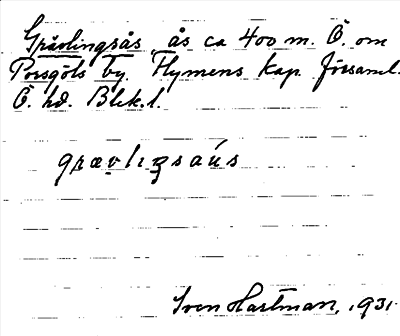 Grävlingsås, ås ca 400 m. Ö. om
Porsgöls by. Flymens kap. församl.
Ö. hd. Blek. l.
grævlɪŋsaús
Sven Hartman, 1931